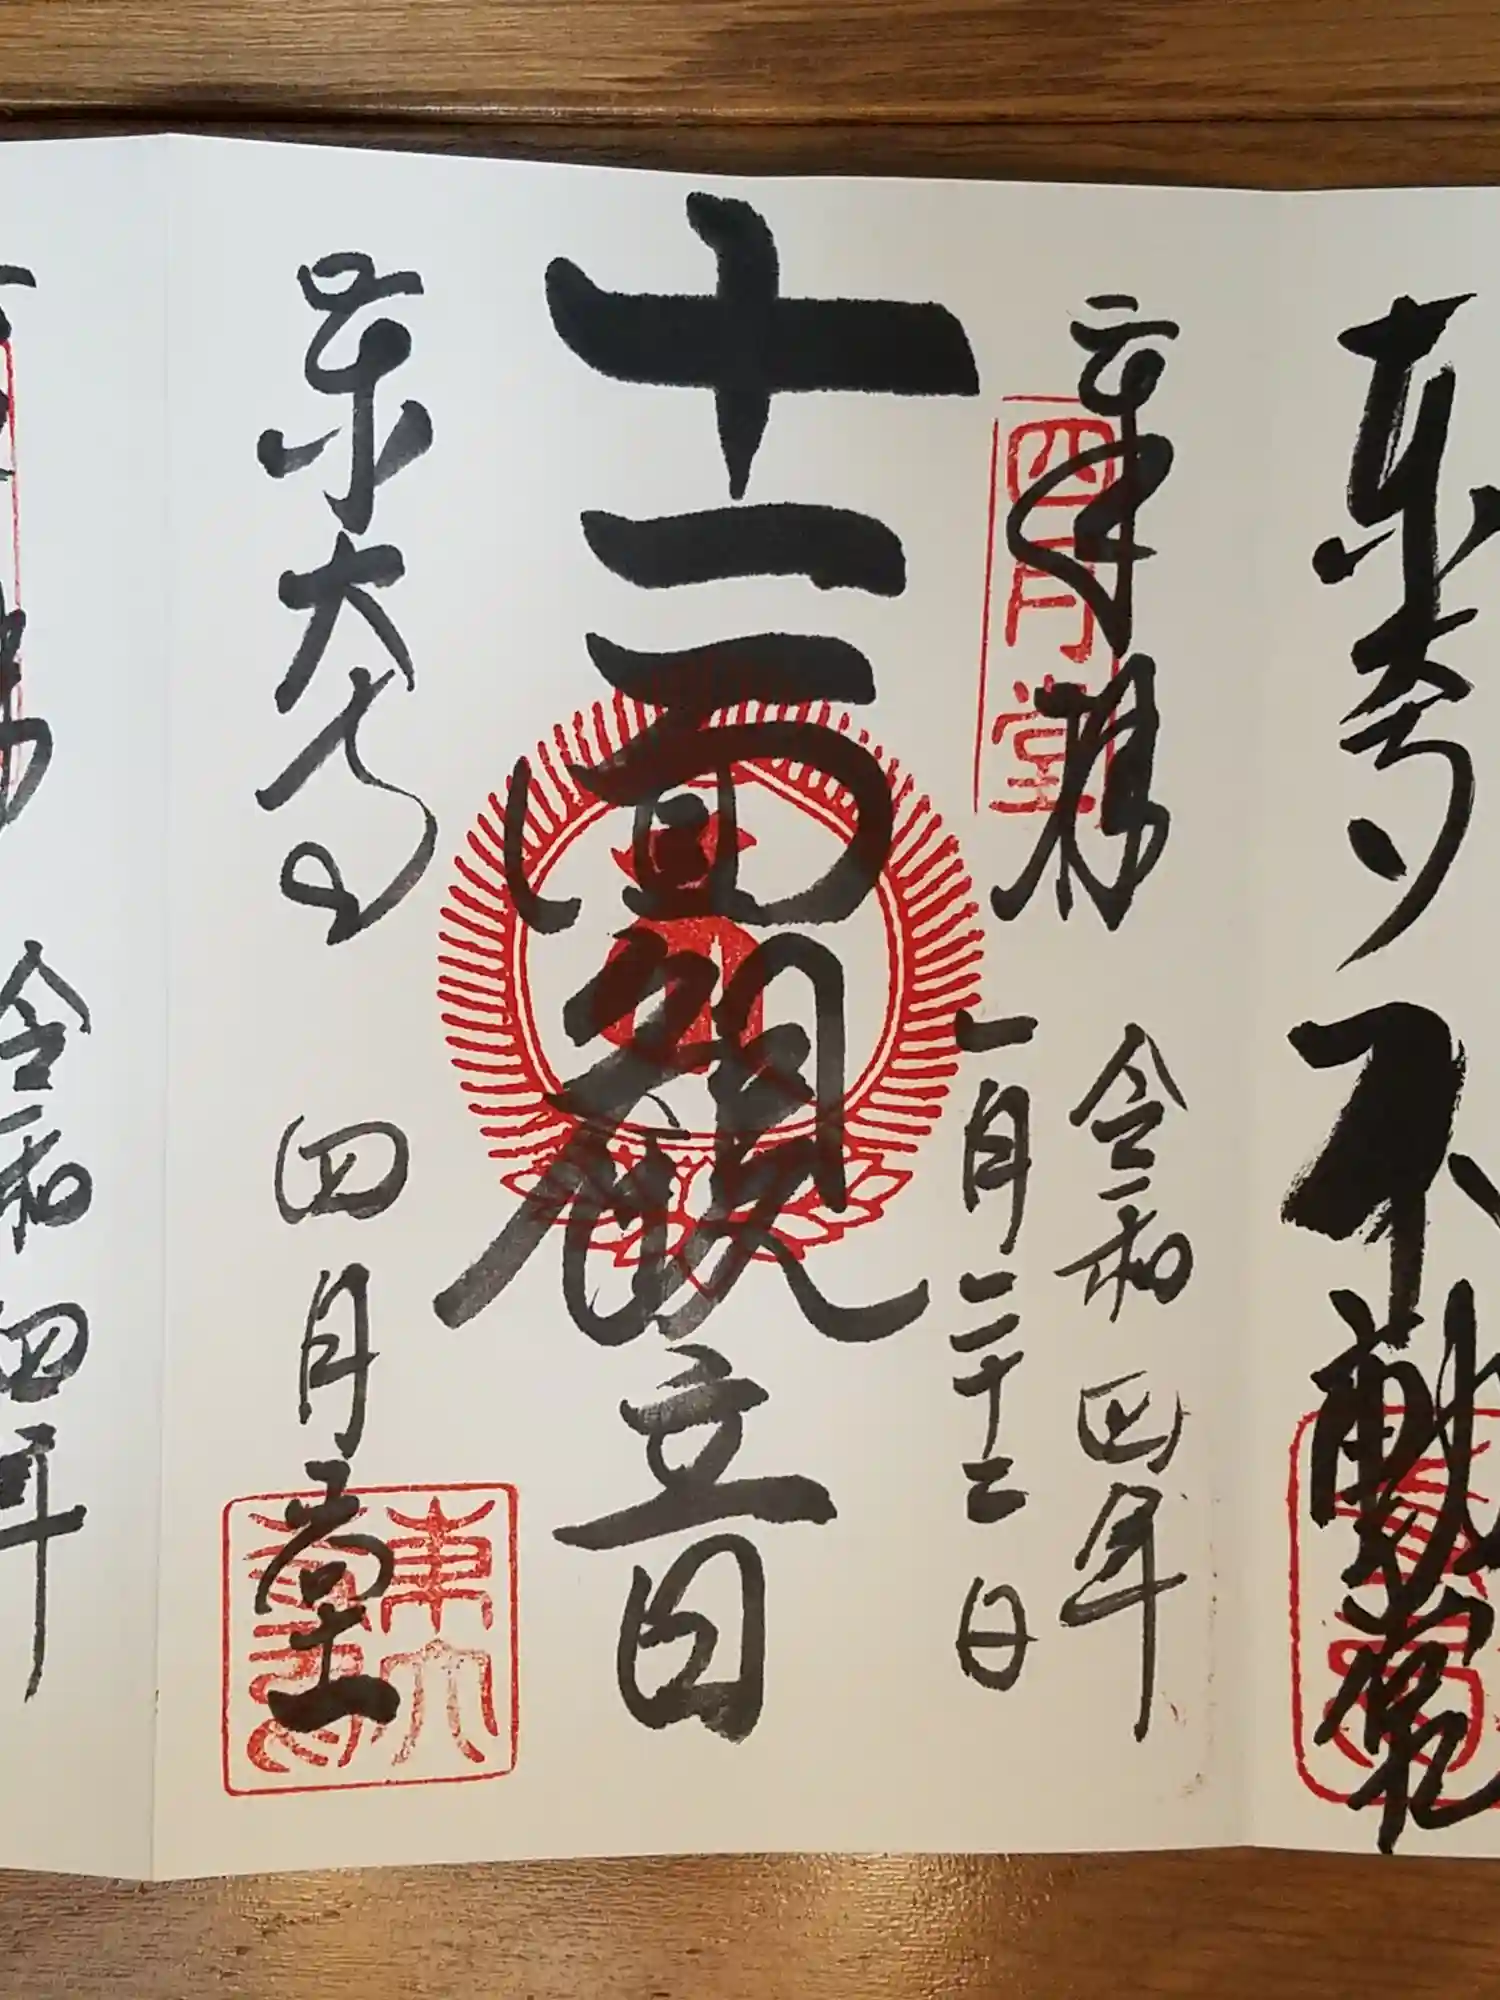 東寺 不動堂
奉拝
四月堂
令和四年
一月二十二日
十一面観音
東大寺
四月堂
東大寺
令和四年